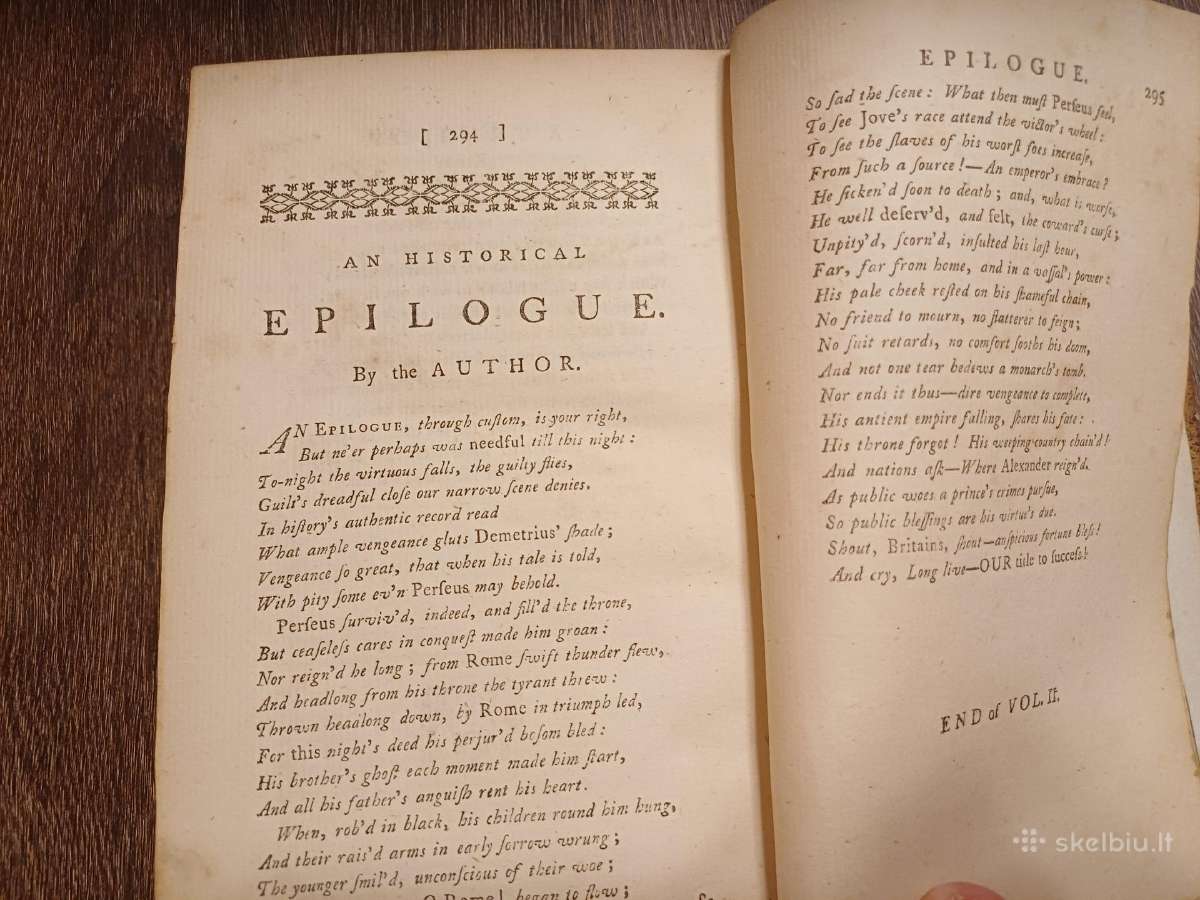 [ 294 ]
AN HISTORICAL
EPILOGUE.
By the AUTHOR.
AN EPILOGUE, through cuſtom, is your right,
But ne'er perhaps was needful till this night:
To-night the virtuous falls, the guilty flies,
Guilt's dreadful cloſe our narrow ſcene denies.
In hiſtory's authentic record read
What ample vengeance gluts Demetrius' ſhade;
Vengeance ſo great, that when his tale is told,
With pity ſome ev'n Perſeus may behold.
Perſeus ſurviv'd, indeed, and fill'd the throne,
But ceaſeleſs cares in conqueſt made him groan:
Nor reign'd he long; from Rome ſwift thunder flew,
And headlong from his throne the tyrant threw:
Thrown headlong down, by Rome in triumph led,
For this night's deed his perjur'd boſom bled:
His brother's ghoſt each moment made him ſtart,
And all his father's anguiſh rent his heart.
When, rob'd in black, his children round him hung,
And their rais'd arms in early ſorrow wrung;
The younger ſmil'd, unconſcious of their woe;
O Rome! began to flow;
EPILOGUE. 295
So ſad the ſcene: What then muſt Perſeus feel,
To ſee Jove's race attend the victor's wheel:
To ſee the ſlaves of his worſt foes increaſe,
From ſuch a ſource!—An emperor's embrace?
He ſicken'd ſoon to death; and, what is worſe,
He well deſerv'd, and felt, the coward's curſe;
Unpity'd, ſcorn'd, inſulted his laſt hour,
Far, far from home, and in a vaſſal's power:
His pale cheek reſted on his ſhameful chain,
No friend to mourn, no flatterer to feign;
No ſuit retards, no comfort ſooths his doom,
And not one tear bedews a monarch's tomb.
Nor ends it thus—dire vengeance to complete,
His antient empire falling, ſhares his fate:
His throne forgot! His weeping country chain'd!
And nations aſk—Where Alexander reign'd.
As public woes a prince's crimes purſue,
So public bleſſings are his virtue's due.
Shout, Britains, ſhout—auſpicious fortune bleſs!
And cry, Long live—OUR title to ſucceſs!
END of VOL. II.
skelbiu.lt